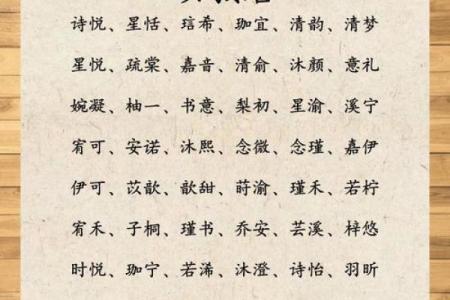 诗悦、星恬、琂希、珈宜、清韵、清梦
星悦、疏棠、嘉音、清俞、沐颜、意礼
婉凝、柚一、书意、梨初、星渝、溪宁
宥可、安诺、沐熙、念微、念瑾、嘉伊
伊可、苡歆、歆甜、莳渝、瑾禾、若柠
宥禾、子桐、瑾书、乔安、芸溪、梓悠
时悦、珈宁、若浠、沐澄、诗怡、羽昕